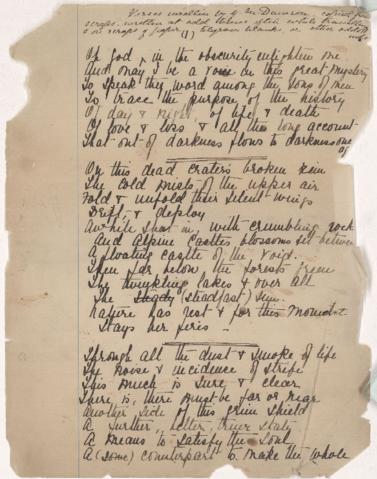 Verses written by G. M. Dawson, copied from
scraps, written at odd times often while travelling
& on scraps of paper, telegram blanks or other odds &
ends
(1)
Of God, in the obscurity enlighten me
And may I be a voice in this great mystery
To speak thy word among the sons of men
To trace the purpose of the history
Of day & night of life & death
Of love & loss, & all the long account
That out of darkness flows to darkness
On this dead crater's broken rim
The cold mists of the upper air
Fold & unfold their silent wings
Drift, & deploy
Awhile shut in, with crumbling rock
And Alpine castles blossoms set between
A floating castle of the void.
Then far below the forests
The twinkling lakes & over all
The steady (steadfast) sun.
Nature has rest & for this moment
Stays her
Through all the dust & smoke of life
The noise & incidence of strife
This much is sure, & clear
There is, there must be far or near
Another side of this grim shield
A further, better, truer state
A means to satisfy the soul
A (some) counterpart to make the whole